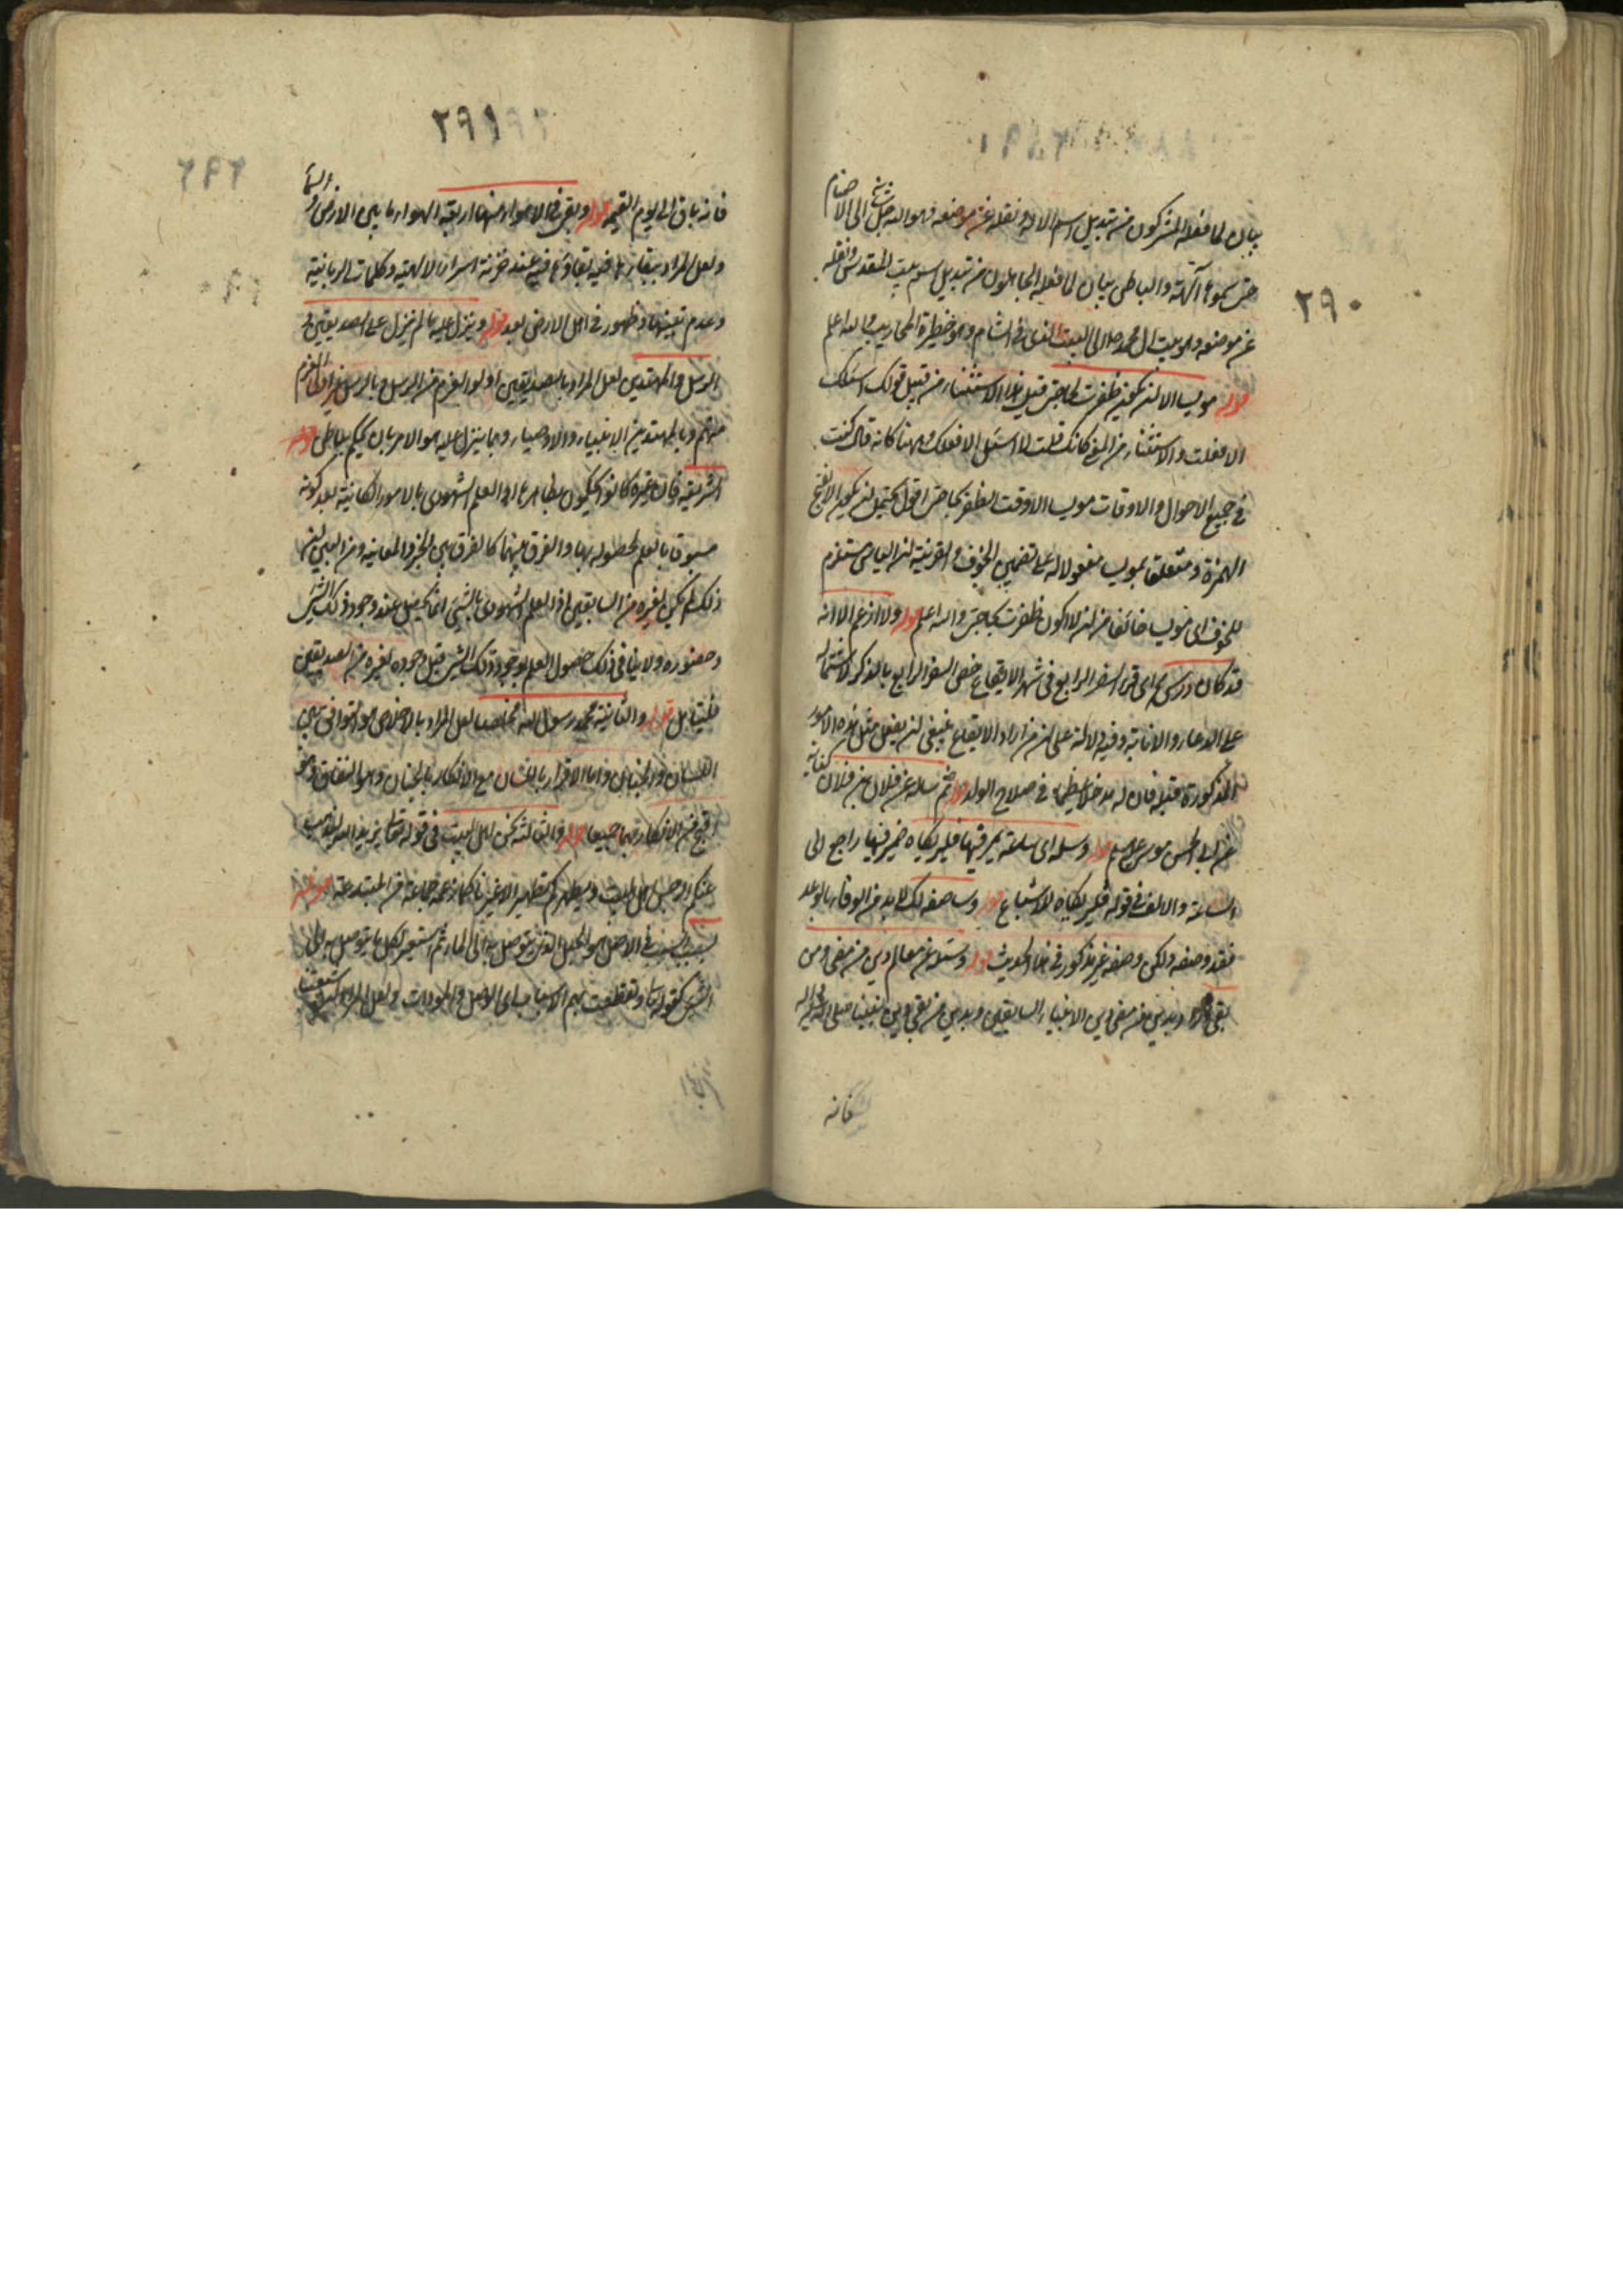 ٢٩٠
بيان لما فعله المشركون من تبديل اسم الاله ونقله عن موضعه وهو الله جل شانه الى الاصنام
حتى سموها آلهة والباطن بيان لما فعله الجاهلون من تبديل اسم بيت المقدس ونقله
عن موضعه وهو بيت ال محمد صلا الى البيت الذى فى الشام وهو خطيرة المحاريب والله اعلم
قوله مويسا الا لن يكون ظفرت بحاجتى قيل هذا الاستثناء من قبيل قولك اسئلك
الا فعلت والاستثناء من النفى كانك قلت لا اسئل الا فعلك وههنا كانه قال كنت
فى جميع الاحوال والاوقات مويسا الا وقت الظفر بحاجتى اقول يحتمل ان يكون الا بفتح
الهمزة ومتعلقا بمويسا مفعولا له على تضمين الخوف والقرينة ان الياس مستلزم
للخوف اى مويسا خائفا من ان لا اكون ظفرت بحاجتى والله اعلم قوله ولا ازعم الا انه
قد كان درس اى قرا السفر الرابع فى شهر الايقاع خص السفر الرابع بالذكر لاشتماله
على الدعاء والانابة وفيه دلالة على ان من اراد الايقاع ينبغى ان يفعل مثل هذه الامور
المذكورة قبله فان له مدخلا عظيما فى صلاح الولد قوله ثم ساله عن فلان بن فلان
عن ابى الحسن موسى ع قوله وسله اى ساعة يمر فيها فليريكاه ضمير فيها راجع الى
الساعة والالف فى قوله فليريكاه للاشباع قوله وساصفه لك لا بد من الوفاء بالوعد
فقد وصفه ولكن وصفه غير مذكور فى هذا الحديث قوله وستلا عن معالم دين من مضى ومن
بقى اراد بدين من مضى دين الانبياء السابقين وبدين من بقى دين نبينا صلى الله عليه واله
فانه
٢٩١
فانه باق الى يوم القيمة قوله وبقى فى الهواء منها اربعة الهواء ما بين الارض والسماء
ولعل المراد ببقائها فيه بقاؤها فيه عند خزنة اسرار الالهية وكلمات الربانية
وعدم تعينها وظهور فى اهل الارض بعد قوله وينزل عليه ما لم ينزل على الصديقين و
الرسل والمهتدين لعل المراد بالصديقين اولو العزم من الرسل وبالرسل غير اولى العزم
منهم وبالمهتدين الانبياء والاوصياء وبما ينزل عليه هو الامر بان يحكم بباطن
الشريعة فان غيره كانوا يحكمون بظاهرها او العلم الشهودى بالامور الكائنة بعد كونه
مسبوقا بالعلم لحصوله بها والفرق بينهما كالفرق بين الخبر والمعاينة ومن البين ان
ذلك لم يكن لغيره من السابقين اذ العلم الشهودى بالشىء انما يحصل عند وجود ذلك الشىء
وحضوره ولا ينافى ذلك حصول العلم بوجود ذلك الشىء قبل وجوده لغيره من الصديقين
فليتامل قوله والثانية محمد رسول الله مخلصا لعل المراد بالاخلاص هو التوافق بين
اللسان والجنان واما الاقرار باللسان مع الانكار بالجنان وهو النفاق وهو
اقبح من الانكار بهما جميعا قوله والثالثة نحن اهل البيت فى قوله تعالى انما يريد الله ليذهب
عنكم الرجس اهل البيت ويطهركم تطهيرا لا غيرنا كما زعمه جماعة من المبتدعة قوله
بسبب السبب فى الاصل هو الحبل الذى يتوصل به الى الماء ثم استعير لكل ما يتوصل به الى
الشىء كقوله تعالى وتقطعت بهم الاسباب اى الوصل والمودات ولعل المراد